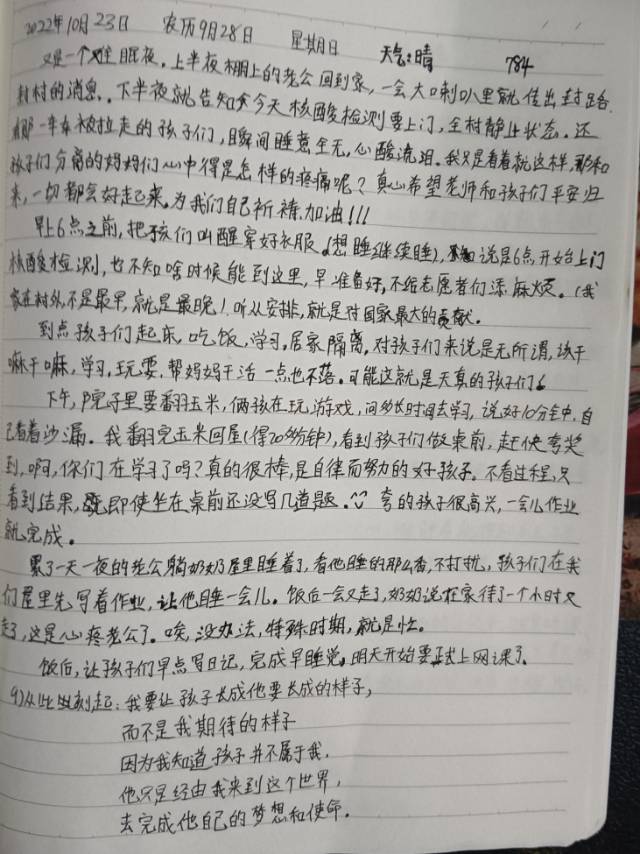 2022年10月23日 农历9月28日 星期日 天气:晴 784
又是一个难眠夜。上半夜棚上的老公回到家,一会大喇叭里就传出封路
封村的消息。下半夜就告知今天核酸检测要上门,全村静止状态。还
有那一车车被拉走的孩子们,瞬间睡意全无,心酸流泪。我只是看着就这样,那和
孩子们分离的妈妈们心中得是怎样的疼痛呢?真心希望老师和孩子们平安归
来,一切都会好起来。为我们自己祈祷加油!!!
早上6点之前,把孩们叫醒穿好衣服(想睡继续睡),说是6点开始上门
核酸检测,也不知啥时候能到这里,早准备好,不给志愿者们添麻烦。(我
家在村外,不是最早,就是最晚)听从安排,就是对国家最大的贡献。
到点孩子们起床,吃饭,学习,居家隔离,对孩子们来说是无所谓,该干
嘛干嘛,学习,玩耍,帮妈妈干活一点也不落。可能这就是天真的孩子们。
下午,院子里要翻玉米,俩孩在玩游戏,问多长时间去学习,说好10分钟,自
己看着沙漏。我翻完玉米回屋(得20多分钟),看到孩子们做桌前,赶快夸奖
到,啊,你们在学习了吗?真的很棒,是自律而努力的好孩子。不看过程,只
看到结果,即使坐在桌前还没写几道题。夸的孩子很高兴,一会儿作业
就完成。
累了一天一夜的老公躺奶奶屋里睡着了,看他睡的那么香,不打扰,孩子们在我
们屋里先写着作业,让他睡一会儿。饭后一会又走了,奶奶说在家待了一个小时又
走了,这是心疼老公了。唉,没办法,特殊时期,就是忙。
饭后,让孩子们早点写日记,完成早睡觉,明天开始要正式上网课了。
9)从此刻起:我要让孩子长成他要长成的样子,
而不是我期待的样子
因为我知道孩子并不属于我,
他只是经由我来到这个世界,
去完成他自己的梦想和使命。